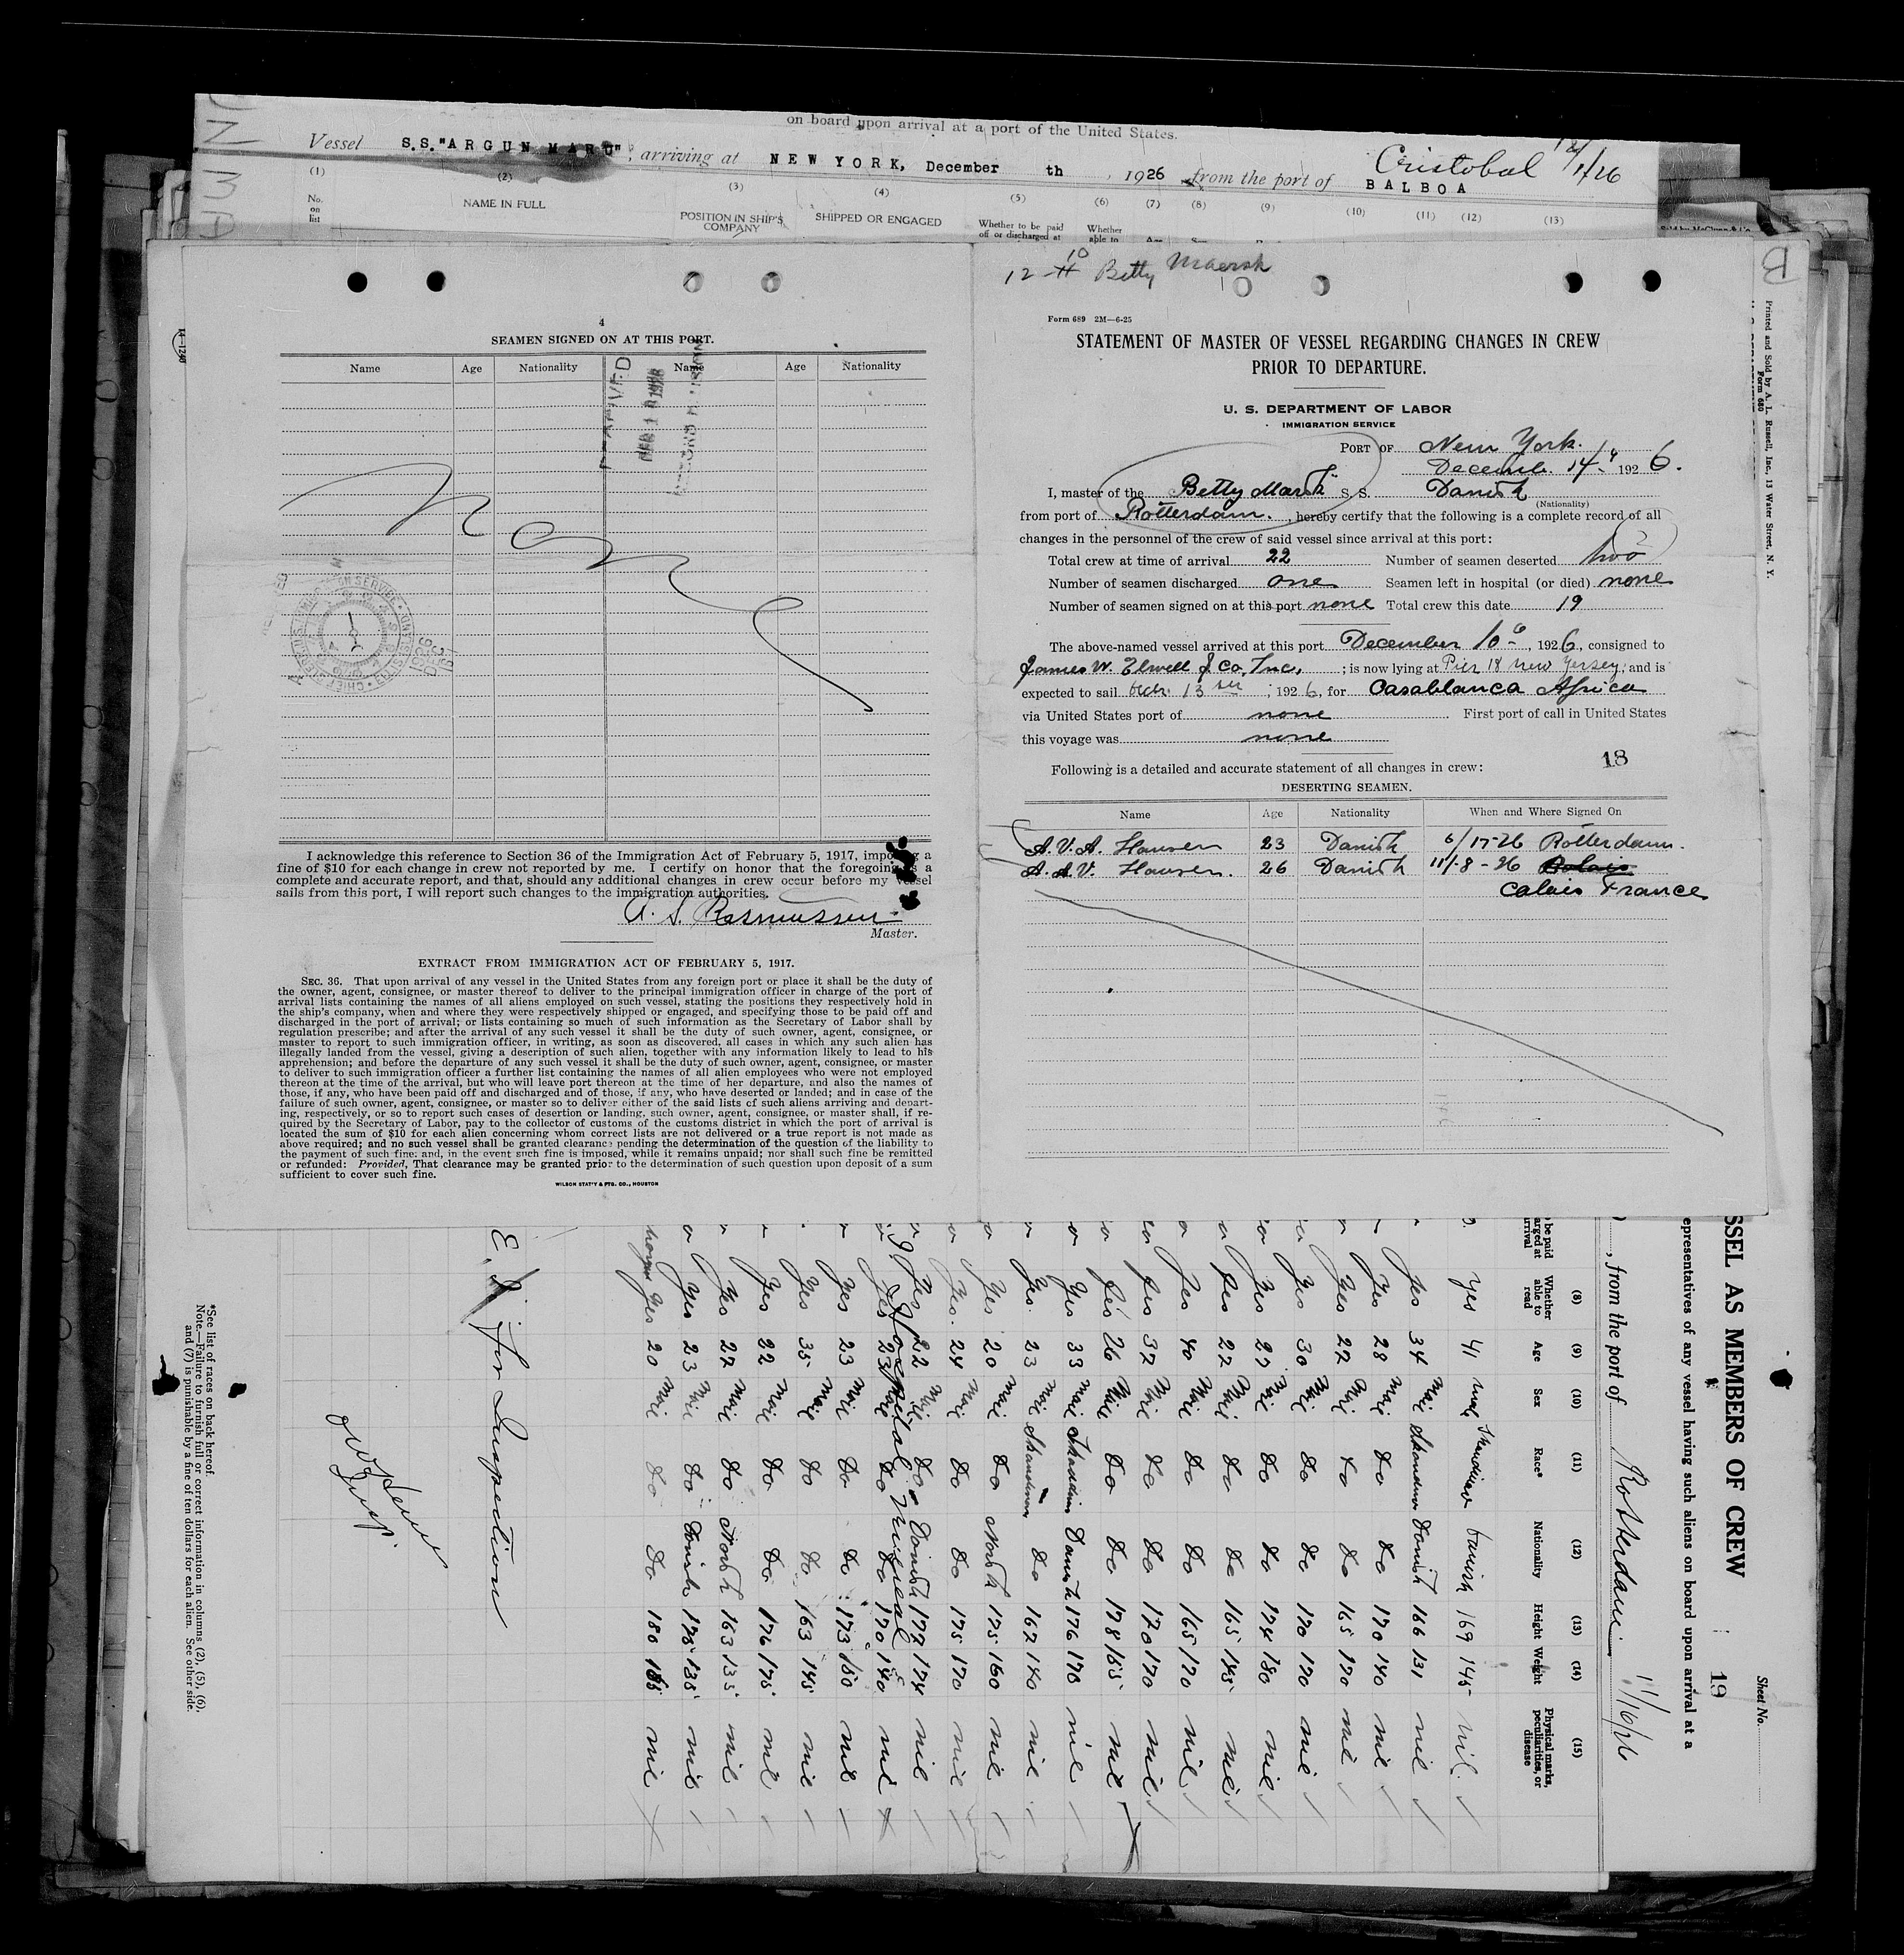 on board upon arrival at a port of the United States.
Vessel S.S."ARGUN MARU", arriving at NEW YORK, December th, 1926 from the port of BALBOA
Cristobal
(1) (2) (3) (4) (5) (6) (7) (8) (9) (10) (11) (12) (13)
No. on list
NAME IN FULL
POSITION IN SHIP'S COMPANY
SHIPPED OR ENGAGED
Whether to be paid off or discharged at
Whether able to
14-1240
4
SEAMEN SIGNED ON AT THIS PORT.
Name Age Nationality Name Age Nationality
None
I acknowledge this reference to Section 36 of the Immigration Act of February 5, 1917, imposing a
fine of $10 for each change in crew not reported by me. I certify on honor that the foregoing is a
complete and accurate report, and that, should any additional changes in crew occur before my vessel
sails from this port, I will report such changes to the immigration authorities.
A. S. Rasmussen
Master.
EXTRACT FROM IMMIGRATION ACT OF FEBRUARY 5, 1917.
SEC. 36. That upon arrival of any vessel in the United States from any foreign port or place it shall be the duty of
the owner, agent, consignee, or master thereof to deliver to the principal immigration officer in charge of the port of
arrival lists containing the names of all aliens employed on such vessel, stating the positions they respectively hold in
the ship's company, when and where they were respectively shipped or engaged, and specifying those to be paid off and
discharged in the port of arrival; or lists containing so much of such information as the Secretary of Labor shall by
regulation prescribe; and after the arrival of any such vessel it shall be the duty of such owner, agent, consignee, or
master to report to such immigration officer, in writing, as soon as discovered, all cases in which any such alien has
illegally landed from the vessel, giving a description of such alien, together with any information likely to lead to his
apprehension; and before the departure of any such vessel it shall be the duty of such owner, agent, consignee, or master
to deliver to such immigration officer a further list containing the names of all alien employees who were not employed
thereon at the time of the arrival, but who will leave port thereon at the time of her departure, and also the names of
those, if any, who have been paid off and discharged and of those, if any, who have deserted or landed; and in case of the
failure of such owner, agent, consignee, or master so to deliver either of the said lists of such aliens arriving and depart-
ing, respectively, or so to report such cases of desertion or landing, such owner, agent, consignee, or master shall, if re-
quired by the Secretary of Labor, pay to the collector of customs of the customs district in which the port of arrival is
located the sum of $10 for each alien concerning whom correct lists are not delivered or a true report is not made as
above required; and no such vessel shall be granted clearance pending the determination of the question of the liability to
the payment of such fine; and, in the event such fine is imposed, while it remains unpaid; nor shall such fine be remitted
or refunded: Provided, That clearance may be granted prior to the determination of such question upon deposit of a sum
sufficient to cover such fine.
WILSON STAT'Y & PTG. CO., HOUSTON
Betty Maersk
Form 689 2M—6-25
STATEMENT OF MASTER OF VESSEL REGARDING CHANGES IN CREW
PRIOR TO DEPARTURE.
U. S. DEPARTMENT OF LABOR
IMMIGRATION SERVICE
PORT OF New York.
December 14, 1926.
I, master of the Betty Marsk S. S. Danish
(Nationality)
from port of Rotterdam., hereby certify that the following is a complete record of all
changes in the personnel of the crew of said vessel since arrival at this port:
Total crew at time of arrival 22 Number of seamen deserted two
Number of seamen discharged one Seamen left in hospital (or died) none
Number of seamen signed on at this port none Total crew this date 19
The above-named vessel arrived at this port December 10, 1926, consigned to
James W. Elwell & Co, Inc, ; is now lying at Pier 18 New Jersey; and is
expected to sail 13; 1926, for Casablanca Africa
via United States port of none. First port of call in United States
this voyage was none
18
Following is a detailed and accurate statement of all changes in crew:
DESERTING SEAMEN.
Name Age Nationality When and Where Signed On
A.V.A. Hansen 23 Danish 6/17-26 Rotterdam.
A.A.V. Hansen. 26 Danish 11/-8-26
Calais France
Printed and Sold by A. L. Russell, Inc., 13 Water Street, N. Y.
Form 680
B
SSEL AS MEMBERS OF CREW
Sheet No.
19
epresentatives of any vessel having such aliens on board upon arrival at a
, from the port of Rotterdam
(8) (9) (10) (11) (12) (13) (14) (15)
Whether able to read Age Sex Race* Nationality Height Weight Physical marks, peculiarities, or disease
yes 41 169 145 nil.
yes 34 Danish 166 131 nil
yes 28 Do Do 170 140 nil
yes 27 Do Do 165 170 nil
yes 30 Do Do 170 170 nil
yes 27 Do Do 174 180 nil
yes 27 Do Do 165 185 nil
yes 40 Do Do 165 170 nil
yes 37 Do Do 170 170 nil
yes 26 Do Do 178 165 nil
yes 33 Danish 176 170 nil
yes. 23 Do 167 140 nil
yes 20 Do 175 160 nil
yes. 24 Do Do 175 170 nil
yes 22 Do Danish 177 174 nil
yes 23 Do Do 170 140 nil
yes 23 Do Do 173 150 nil
yes 35 Do Do 163 145 nil
yes 22 Do Do 176 175 nil
yes 27 Do 163 135 nil
yes 23 Do Danish 175 135 nil
yes 20 Do Do 180 nil
for Inspection
Insp.
*See list of races on back hereof.
Note.—Failure to furnish full or correct information in columns (2), (5), (6),
and (7) is punishable by a fine of ten dollars for each alien. See other side.